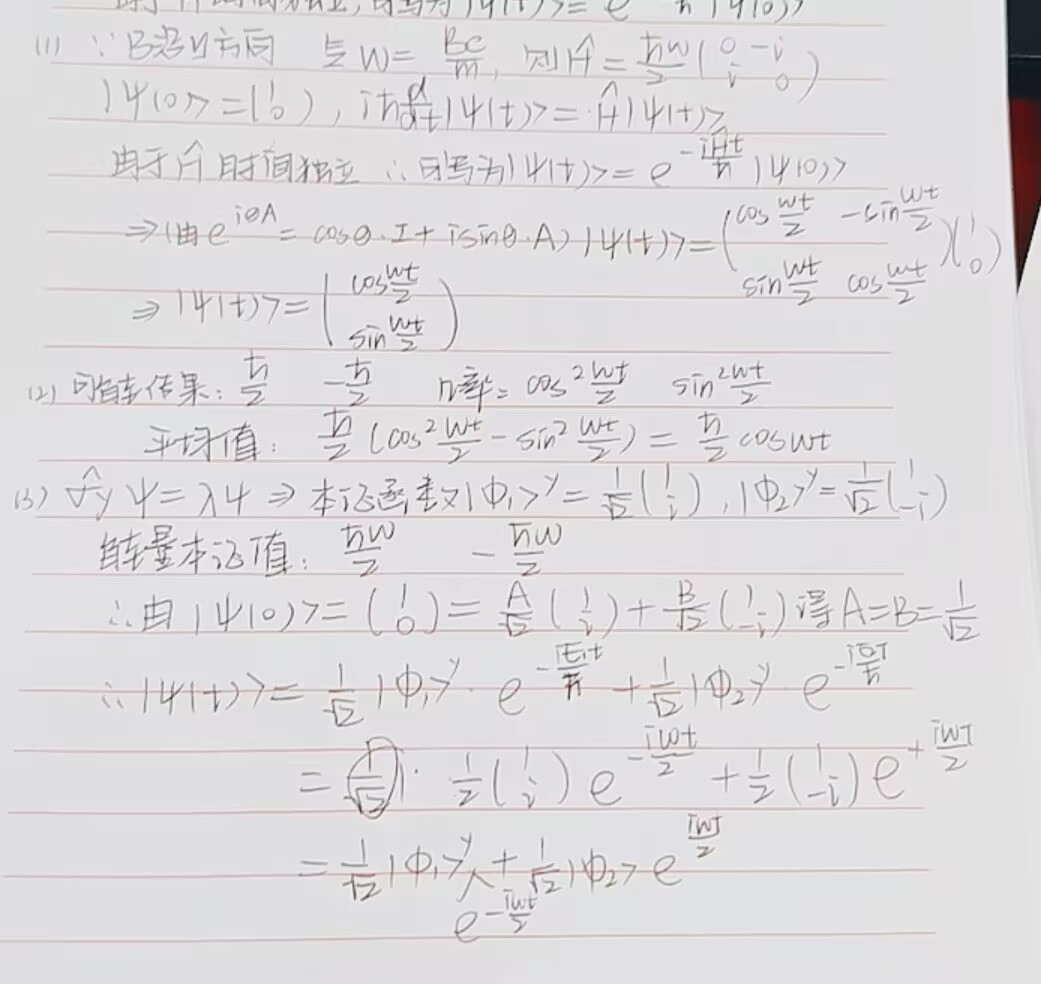 由于Ĥ时间独立,可写为|ψ(t)> = e^{-iĤt/ħ}|ψ(0)>
(1) ∵B沿y方向 与 W = Be/m, 则Ĥ = ħw/2 (0 -i; i 0)
|ψ(0)> = (1; 0), iħ d/dt |ψ(t)> = Ĥ|ψ(t)>
由于Ĥ时间独立 ∴可写为|ψ(t)> = e^{-iĤt/ħ} |ψ(0)>
⇒(由e^{iθA} = cosθ·I + isinθ·A) |ψ(t)> = (cos wt/2 -sin wt/2; sin wt/2 cos wt/2)(1; 0)
⇒ |ψ(t)> = (cos wt/2; sin wt/2)
(2) 可能结果: ħ/2 -ħ/2 几率= cos² wt/2 sin² wt/2
平均值: ħ/2 (cos² wt/2 - sin² wt/2) = ħ/2 cos wt
(3) σ̂y ψ = λψ ⇒ 本证函数|φ₁>^y = 1/√2 (1; i), |φ₂>^y = 1/√2 (1; -i)
能量本证值: ħw/2 -ħw/2
∴由|ψ(0)> = (1; 0) = A/√2 (1; i) + B/√2 (1; -i) 得A=B=1/√2
∴|ψ(t)> = 1/√2 |φ₁>^y · e^{-iE₁t/ħ} + 1/√2 |φ₂>^y · e^{-iE₂t/ħ}
= 1/2 (1; i) e^{-iwt/2} + 1/2 (1; -i) e^{+iwt/2}
= 1/√2 |φ₁>^y e^{-iwt/2} + 1/√2 |φ₂> e^{iwt/2}